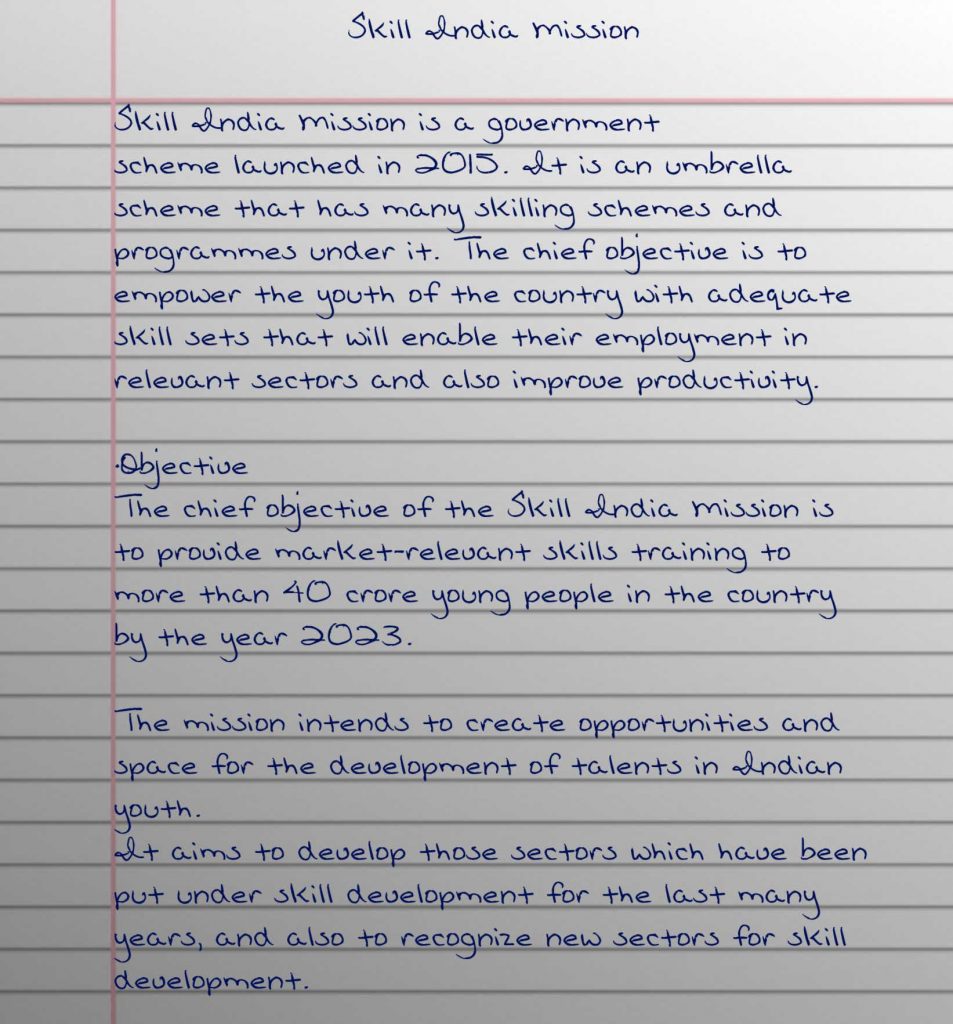 Skill India mission
Skill India mission is a government
scheme launched in 2015. It is an umbrella
scheme that has many skilling schemes and
programmes under it. The chief objective is to
empower the youth of the country with adequate
skill sets that will enable their employment in
relevant sectors and also improve productivity.
·Objective
The chief objective of the Skill India mission is
to provide market-relevant skills training to
more than 40 crore young people in the country
by the year 2023.
The mission intends to create opportunities and
space for the development of talents in Indian
youth.
It aims to develop those sectors which have been
put under skill development for the last many
years, and also to recognize new sectors for skill
development.